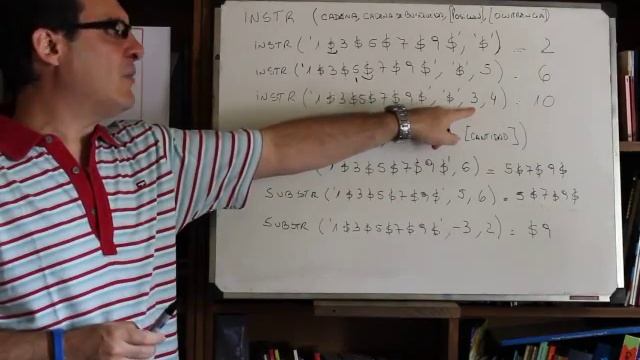 INSTR (CADENA, CADENA DE BUSQUEDA, [POSICION], [OCURRENCIA])
INSTR ('1$3$5$7$9$', '$') = 2
INSTR ('1$3$5$7$9$', '$', 5) = 6
INSTR ('1$3$5$7$9$', '$', 3, 4) = 10
[CANTIDAD])
('1$3$5$7$9$', 6) = 5$7$9$
SUBSTR ('1$3$5$7$9$', 5, 6) = 5$7$9$
SUBSTR ('1$3$5$7$9$', -3, 2) = $9